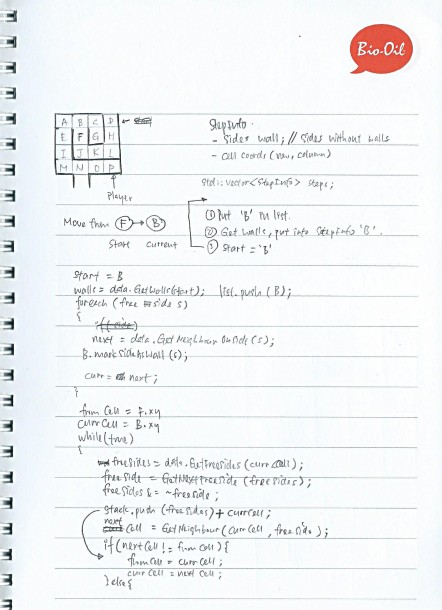 Bio-Oil
A B C D
E F G H
I J K L
M N O P
Player
StepInfo.
- Sides wall; // sides without walls
- Cell coords (row, column)
std::vector<StepInfo> steps;
Move from F → B
Start current
① Put 'B' in list.
② Get walls, put into StepInfo 'B'.
③ Start = 'B'
start = B
walls = data.GetWalls(start); list.push (B);
foreach (free side s)
{
next = data.GetNeighbourOnSide(s);
B.markSideAsWall(s);
curr = next;
}
fromCell = F.xy
currCell = B.xy
while(true)
{
freeSides = data.GetFreeSides(currCell);
freeSide = GetNextFreeSide (freeSides);
freeSides &= ~freeSide;
stack.push (freeSides) + currCell;
next Cell = GetNeighbour(currCell, freeSide);
if(nextCell != fromCell){
fromCell = currCell;
currCell = nextCell;
}else{